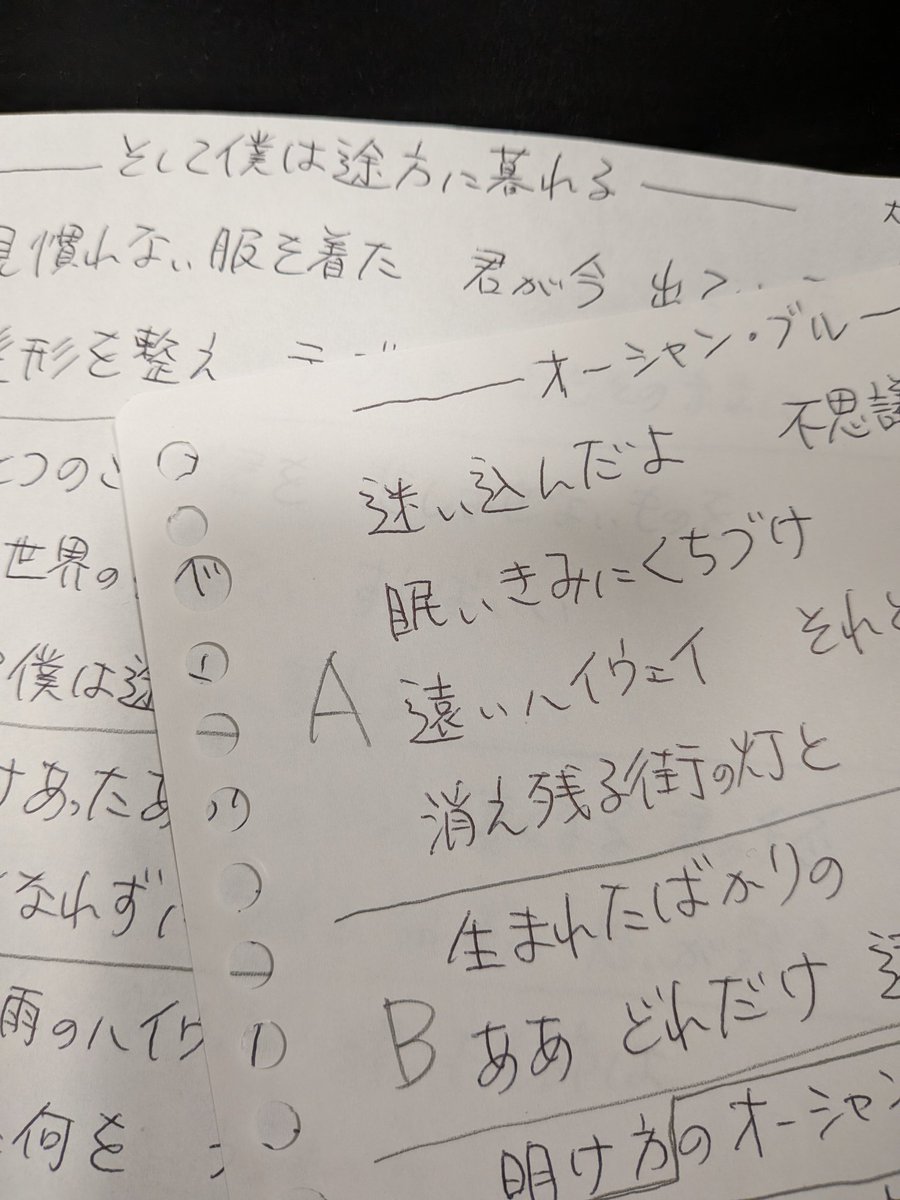 そして僕は途方に暮れる
見慣れない服を着た 君が今 出
形を整え
つのこ
世界の
僕は途
けあったあ
なれずに
雨のハイウ
何を
オーシャン・ブルー
迷い込んだよ 不思議
眠いきみにくちづけ
A 遠いハイウェイ それと
消え残る街の灯と
生まれたばかりの
B ああ どれだけ
明け方のオーシャン